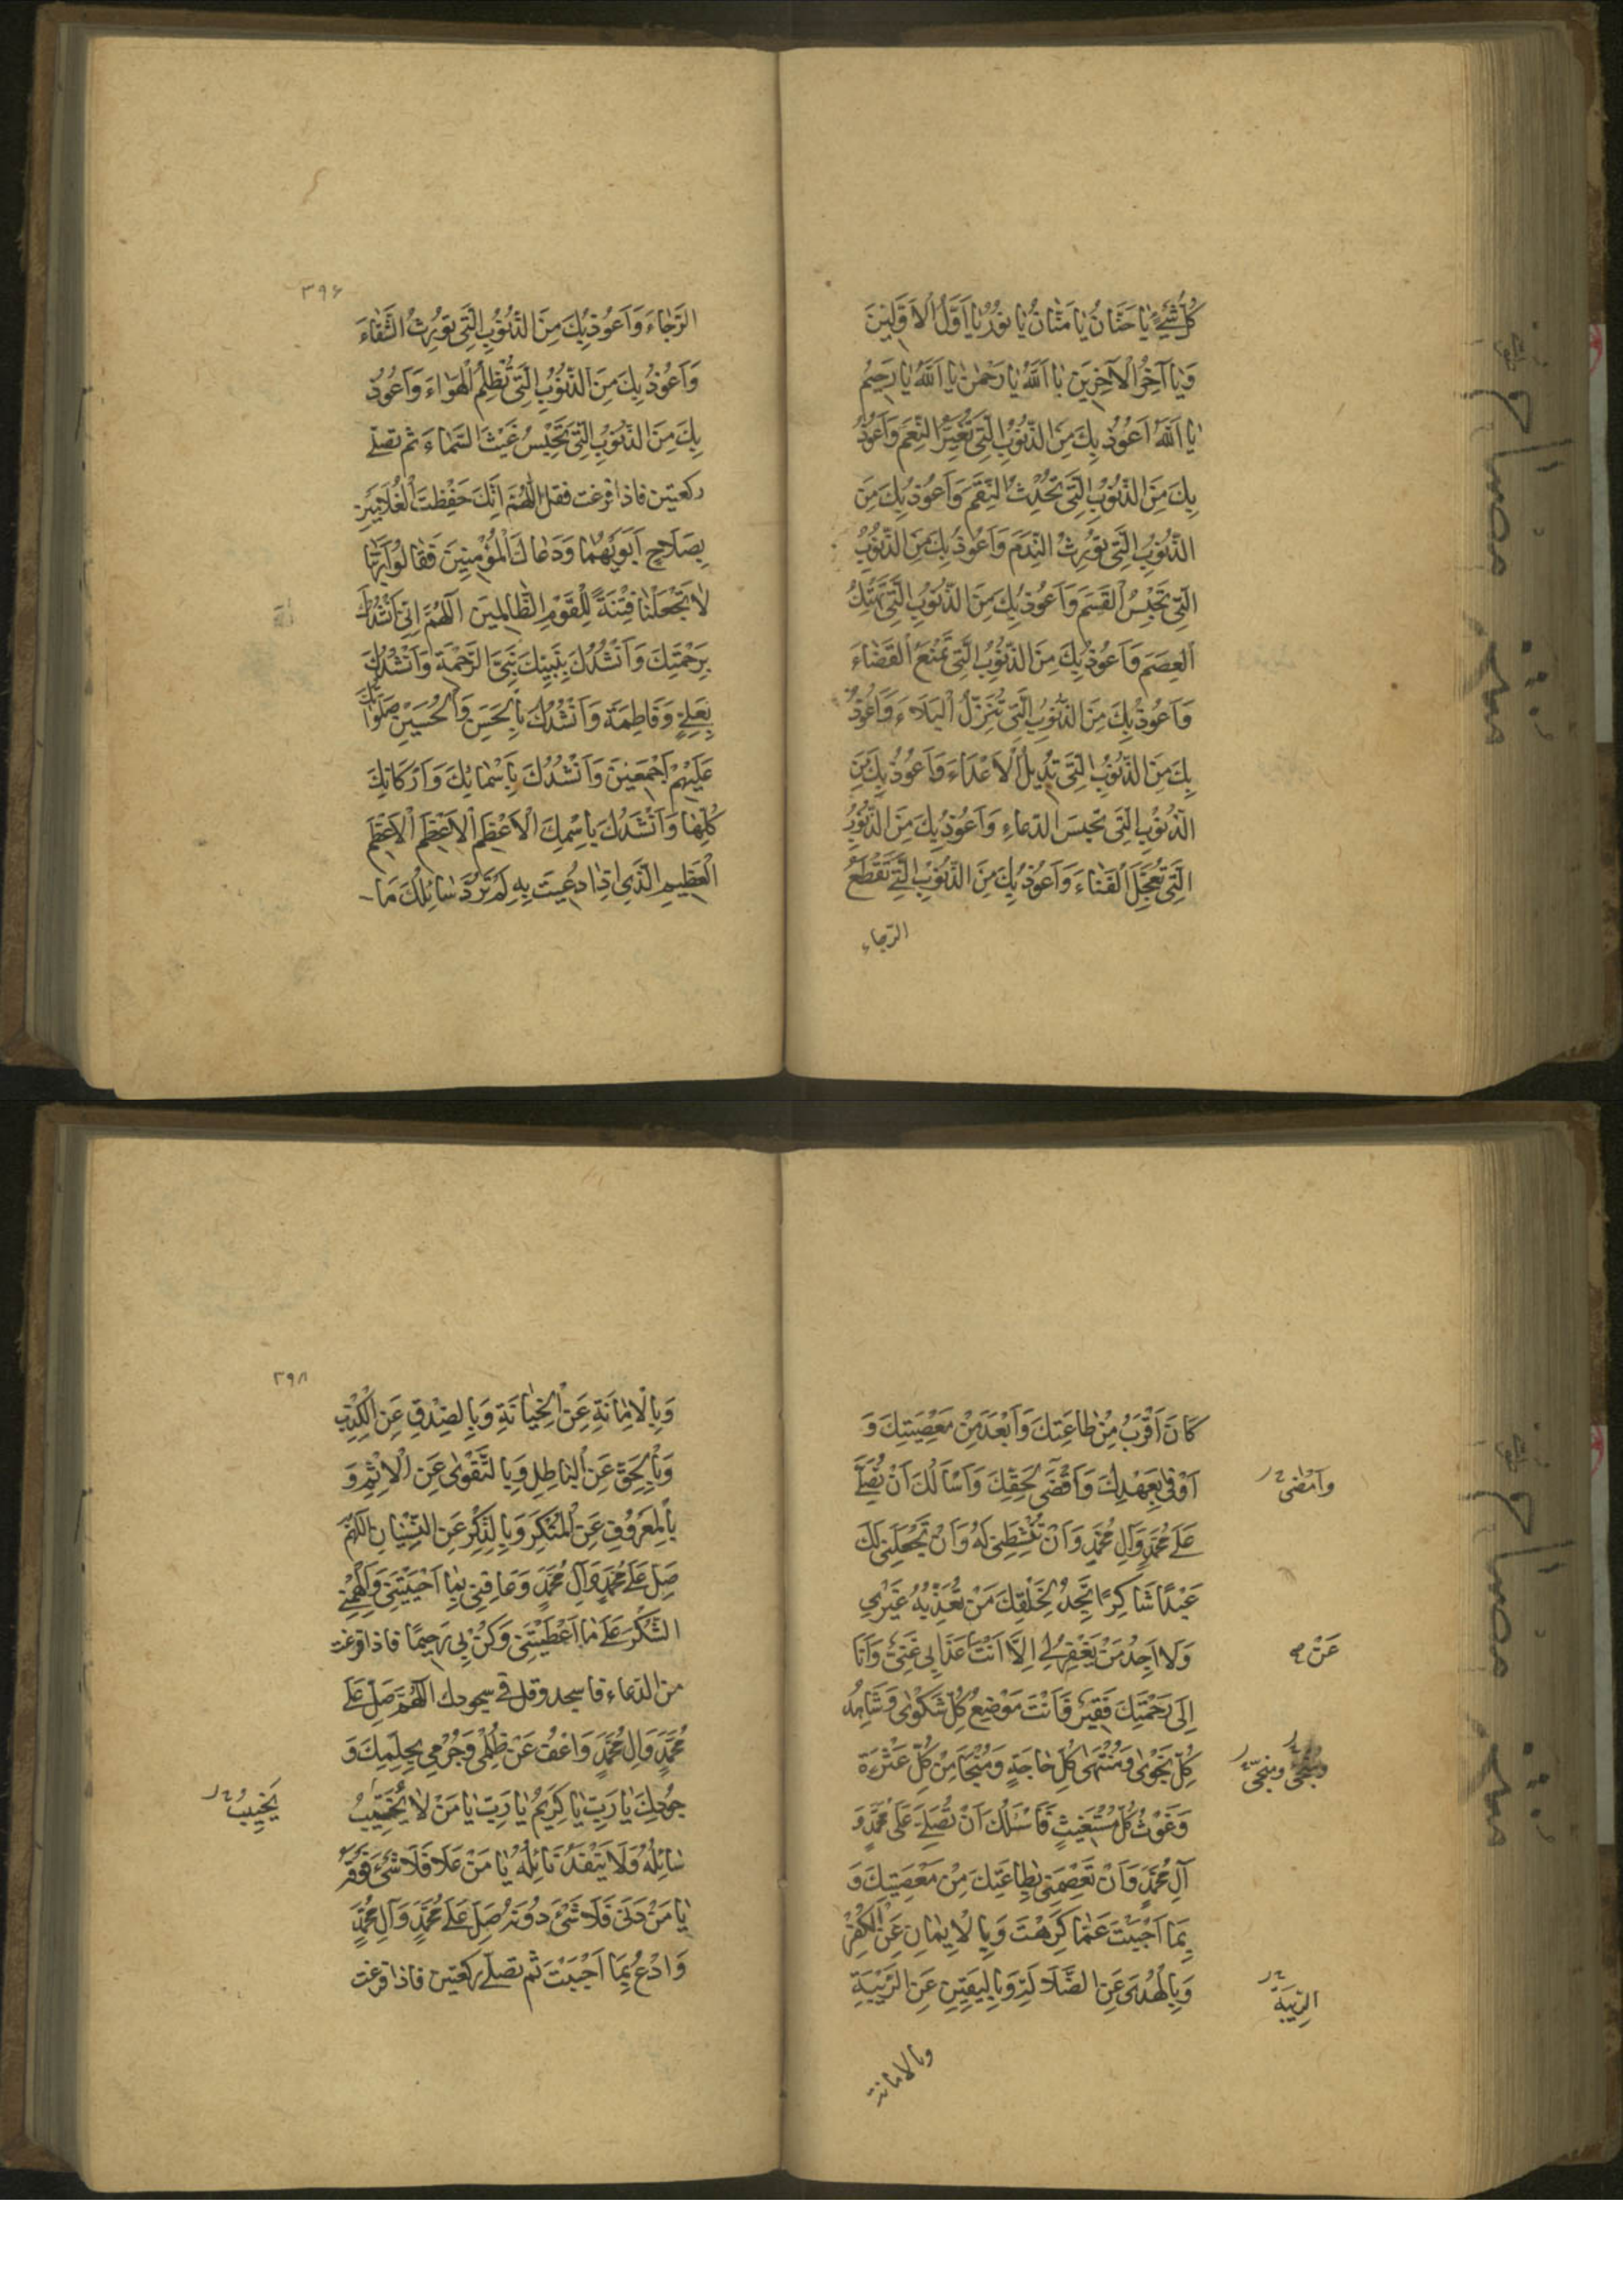 كُلِّ شَيْءٍ يَا حَنَّانُ يَا مَنَّانُ يَا نُورُ يَا أَوَّلَ الْأَوَّلِينَ
وَيَا آخِرَ الْآخِرِينَ يَا اَللّٰهُ يَا رَحْمٰنُ يَا اَللّٰهُ يَا رَحِيمُ
يَا اَللّٰهُ اَعُوذُ بِكَ مِنَ الذُّنُوبِ الَّتِي تُغَيِّرُ النِّعَمَ وَاَعُوذُ
بِكَ مِنَ الذُّنُوبِ الَّتِي تُحْدِثُ النِّقَمَ وَاَعُوذُ بِكَ مِنَ
الذُّنُوبِ الَّتِي تُورِثُ النَّدَمَ وَاَعُوذُ بِكَ مِنَ الذُّنُوبِ
الَّتِي تَحْبِسُ الْقِسَمَ وَاَعُوذُ بِكَ مِنَ الذُّنُوبِ الَّتِي تَهْتِكُ
الْعِصَمَ وَاَعُوذُ بِكَ مِنَ الذُّنُوبِ الَّتِي تَمْنَعُ الْقَضَاءَ
وَاَعُوذُ بِكَ مِنَ الذُّنُوبِ الَّتِي تُنْزِلُ الْبَلَاءَ وَاَعُوذُ
بِكَ مِنَ الذُّنُوبِ الَّتِي تُدِيلُ الْأَعْدَاءَ وَاَعُوذُ بِكَ مِنَ
الذُّنُوبِ الَّتِي تَحْبِسُ الدُّعَاءِ وَاَعُوذُ بِكَ مِنَ الذُّنُوبِ
الَّتِي تُعَجِّلُ الْفَنَاءَ وَاَعُوذُ بِكَ مِنَ الذُّنُوبِ الَّتِي تَقْطَعُ
الرّجاء
٣٩۶
الرَّجَاءَ وَاَعُوذُ بِكَ مِنَ الذُّنُوبِ الَّتِي تُورِثُ الشَّقَاءَ
وَاَعُوذُ بِكَ مِنَ الذُّنُوبِ الَّتِي تُظْلِمُ الْهَوَاءَ وَاَعُوذُ
بِكَ مِنَ الذُّنُوبِ الَّتِي تَحْبِسُ غَيْثَ السَّمَاءَ ثم تصلّي
ركعتين فاذا فرغت فقل اَللّٰهُمَّ اِنَّكَ حَفِظْتَ الْغُلَامَيْنِ
بِصَلَاحِ اَبَوَيْهِمَا وَدَعَاكَ الْمُؤْمِنِينَ فَقَالُوا رَبَّنَا
لَا تَجْعَلْنَا فِتْنَةً لِلْقَوْمِ الظَّالِمِينَ اَللّٰهُمَّ اِنِّي اَنْشُدُكَ
بِرَحْمَتِكَ وَاَنْشُدُكَ بِنَبِيِّكَ نَبِيِّ الرَّحْمَةِ وَاَنْشُدُكَ
بِعَلِيٍّ وَفَاطِمَةَ وَاَنْشُدُكَ بِالْحَسَنِ وَالْحُسَيْنِ صَلَوَاتُكَ
عَلَيْهِمْ اَجْمَعِينَ وَاَنْشُدُكَ بِاَسْمَائِكَ وَاَرْكَانِكَ
كُلِّهَا وَاَنْشُدُكَ بِاسْمِكَ الْأَعْظَمِ الْأَعْظَمِ الْأَعْظَمِ
الْعَظِيمِ الَّذِي اِذَا دُعِيتَ بِهِ لَمْ تَرُدَّ سَائِلَكَ مَا
كَانَ اَقْرَبُ مِنْ طَاعَتِكَ وَاَبْعَدَ مِنْ مَعْصِيَتِكَ وَ
اَوْفَى بِعَهْدِكَ وَاَقْضَى لِحَقِّكَ وَاَسْاَلُكَ اَنْ تُصَلِّيَ
وَاَمْضٰى
عَلَى مُحَمَّدٍ وَآلِ مُحَمَّدٍ وَاَنْ تُنَشِّطَنِي لَهُ وَاَنْ تَجْعَلَنِي لَكَ
عَبْدًا شَاكِرًا تَجِدُ لِخَلْقِكَ مَنْ تُعَذِّبُهُ غَيْرِي
وَلَا اَجِدُ مَنْ يَغْفِرُ لِي اِلَّا اَنْتَ عَذَابِي غَنِيٌّ وَاَنَا
عَنْ
اِلَى رَحْمَتِكَ فَقِيرٌ فَاَنْتَ مَوْضِعُ كُلِّ شَكْوَى وَشَاهِدُ
كُلِّ نَجْوَى وَمُنْتَهَى كُلِّ حَاجَةٍ وَمُنْجًا مِنْ كُلِّ عَثْرَةٍ
وَمُنَجّى
وَغَوْثُ كُلِّ مُسْتَغِيثٍ فَاَسْئَلُكَ اَنْ تُصَلِّيَ عَلَى مُحَمَّدٍ وَ
آلِ مُحَمَّدٍ وَاَنْ تَعْصِمَنِي بِطَاعَتِكَ مِنْ مَعْصِيَتِكَ وَ
بِمَا اَحْبَبْتَ عَمَّا كَرِهْتَ وَبِالْاِيمَانِ عَنِ الْكُفْرِ
وَبِالْهُدَى عَنِ الضَّلَالَةِ وَبِالْيَقِينِ عَنِ الرِّيبَةِ
الرِّيبَةِ
وبالامانة
٣٩٨
وَبِالْاَمَانَةِ عَنِ الْخِيَانَةِ وَبِالصِّدْقِ عَنِ الْكِذْبِ
وَبِالْحَقِّ عَنِ الْبَاطِلِ وَبِالتَّقْوَى عَنِ الْاِثْمِ وَ
بِالْمَعْرُوفِ عَنِ الْمُنْكَرِ وَبِالذِّكْرِ عَنِ النِّسْيَانِ اللّٰهُمَّ
صَلِّ عَلَى مُحَمَّدٍ وَآلِ مُحَمَّدٍ وَعَافِنِي بِمَا اَحْيَيْتَنِي وَاَلْهِمْنِي
الشُّكْرَ عَلَى مَا اَعْطَيْتَنِي وَكُنْ بِي رَحِيمًا فاذا فرغت
من الدعاء فاسجد وقل في سجودك اَللّٰهُمَّ صَلِّ عَلَى
مُحَمَّدٍ وَآلِ مُحَمَّدٍ وَاعْفُ عَنْ ظُلْمِي وَجُرْمِي بِحِلْمِكَ وَ
جُودِكَ يَا رَبِّ يَا كَرِيمُ يَا رَبِّ يَا مَنْ لَا يُخَيِّبُ
يَخِيبُ
سَائِلُهُ وَلَا يَنْفَدُ نَائِلُهُ يَا مَنْ عَلَا فَلَا شَيْءَ فَوْقَهُ
يَا مَنْ دَنَى فَلَا شَيْءَ دُونَهُ صَلِّ عَلَى مُحَمَّدٍ وَآلِ مُحَمَّدٍ
وَادْعُ بِمَا اَحْبَبْتَ ثم تصلّي ركعتين فاذا فرغت